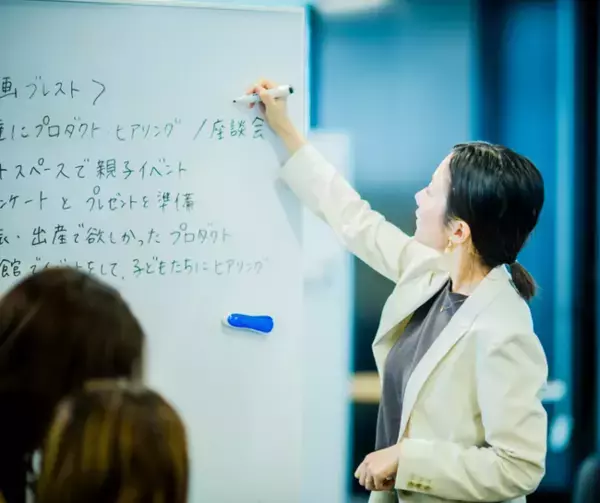 画ブレスト>
にプロダクト ヒアリング / 座談会
トスペースで親子イベント
ンケートとプレゼントを準備
・出産で欲しかったプロダクト
館でイベントをして、子どもたちにヒアリング